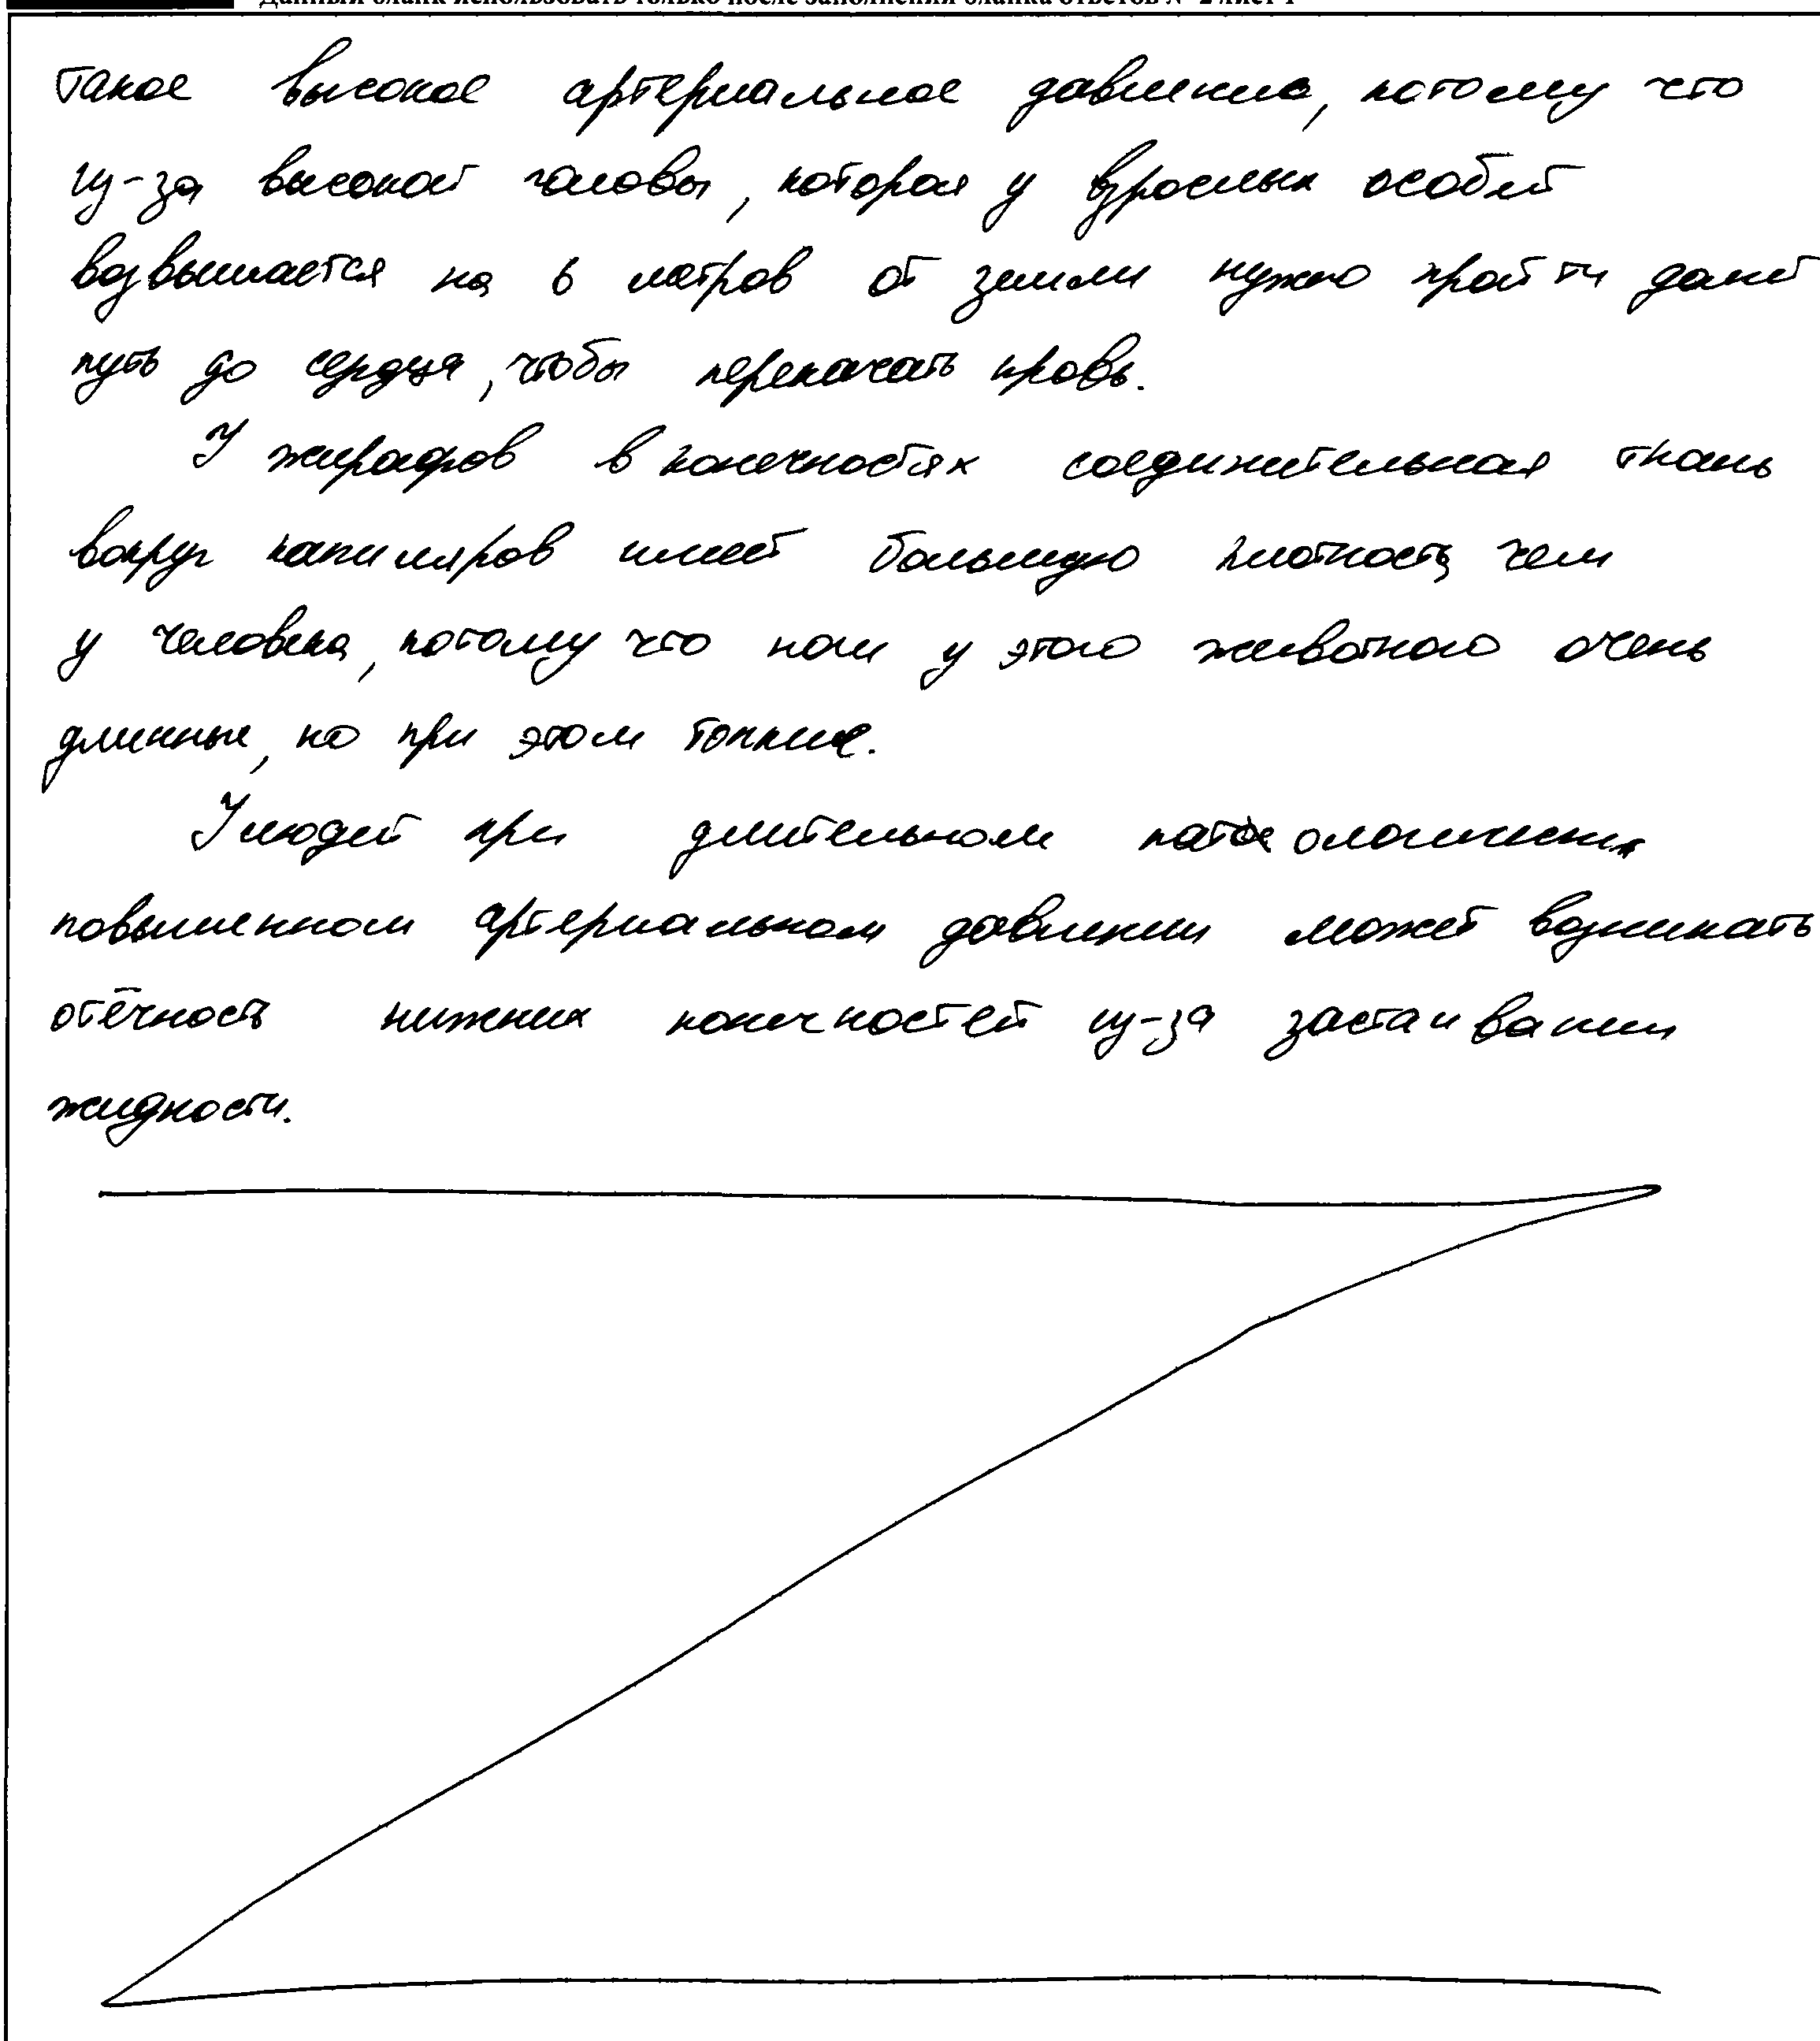 Данный бланк использовать только после заполнения бланка ответов № 2 лист 1
такое высокое артериальное давление, потому что
из-за высокой головы, которая у взрослых особей
возвышается на 6 метров от земли нужно пройти
путь до сердца, чтобы перекачать кровь.
У жирафов в конечностях соединительная ткань
вокруг капиляров имеет большую плотность чем
у человека, потому что ноги у этого животного очень
длинные, но при этом тонкие.
У людей при длительном
повышенном артериальном давлении может возникать
отёчность нижних конечностей из-за застаивания
жидкости.